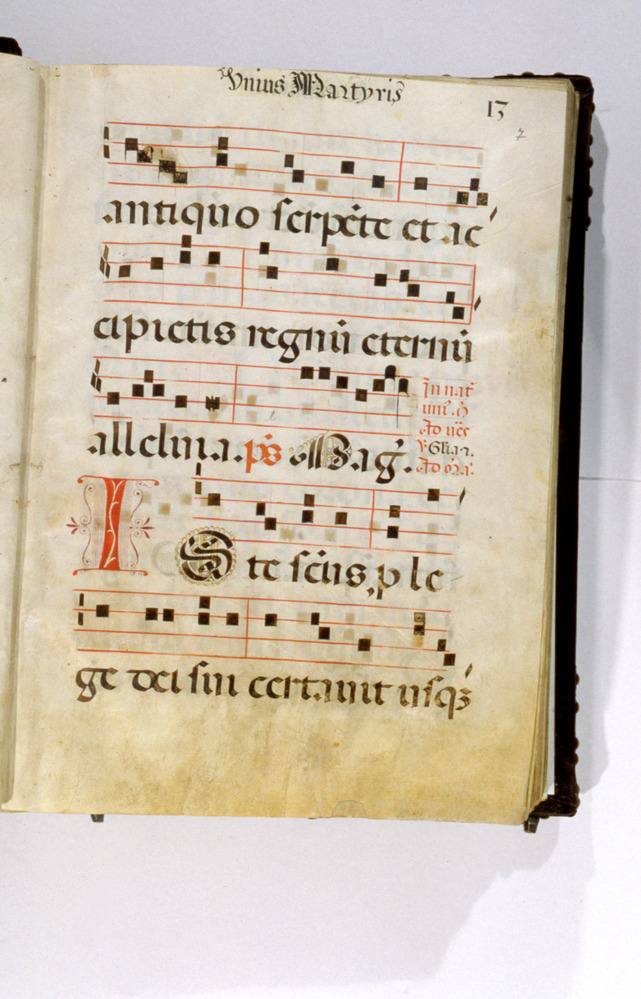 Vnius Martyris
13
7
antiquo serpēte et ac
cipietis regnū eternū
alleluia. ps̄ Mag̃.
In nat̃
uni⁹. m̃
Ad ues̃
℣. Glia. 
Ad
I Ste scūs, p le
ge dei sui certauit usqꝫ